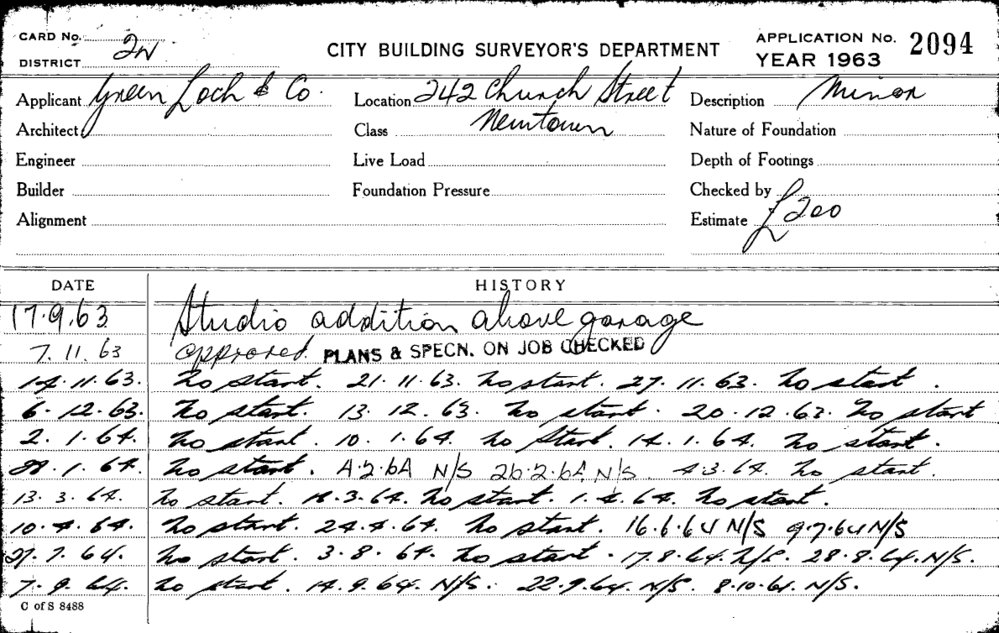 CARD No. 2W
DISTRICT
CITY BUILDING SURVEYOR'S DEPARTMENT
APPLICATION No. 2094
YEAR 1963
Applicant Green Loch & Co. Location 242 Church Street Description Minor
Architect Class Newtown Nature of Foundation
Engineer Live Load Depth of Footings
Builder Foundation Pressure Checked by
Alignment Estimate £200
DATE HISTORY
17.9.63 Studio addition above garage
7.11.63 approved. PLANS & SPECN. ON JOB CHECKED
14.11.63. No start. 21.11.63. No start. 27.11.63. No start.
6.12.63. No start. 13.12.63. No start. 20.12.63. No start
2.1.64. No start. 10.1.64. No start. 14.1.64. No start.
1.64. No start. 4.2.64 N/S 26.2.64 N/S 4.3.64. No start.
13.3.64. No start. 18.3.64. No start. 1.4.64. No start.
10.4.64. No start. 24.4.64. No start. 16.6.64 N/S 9.7.64 N/S
7.64. No start. 3.8.64. No start. 17.8.64. N/S. 28.8.64. N/S.
7.9.64. No start. 14.9.64. N/S. 22.9.64. N/S. 8.10.64. N/S.
C of S 8488